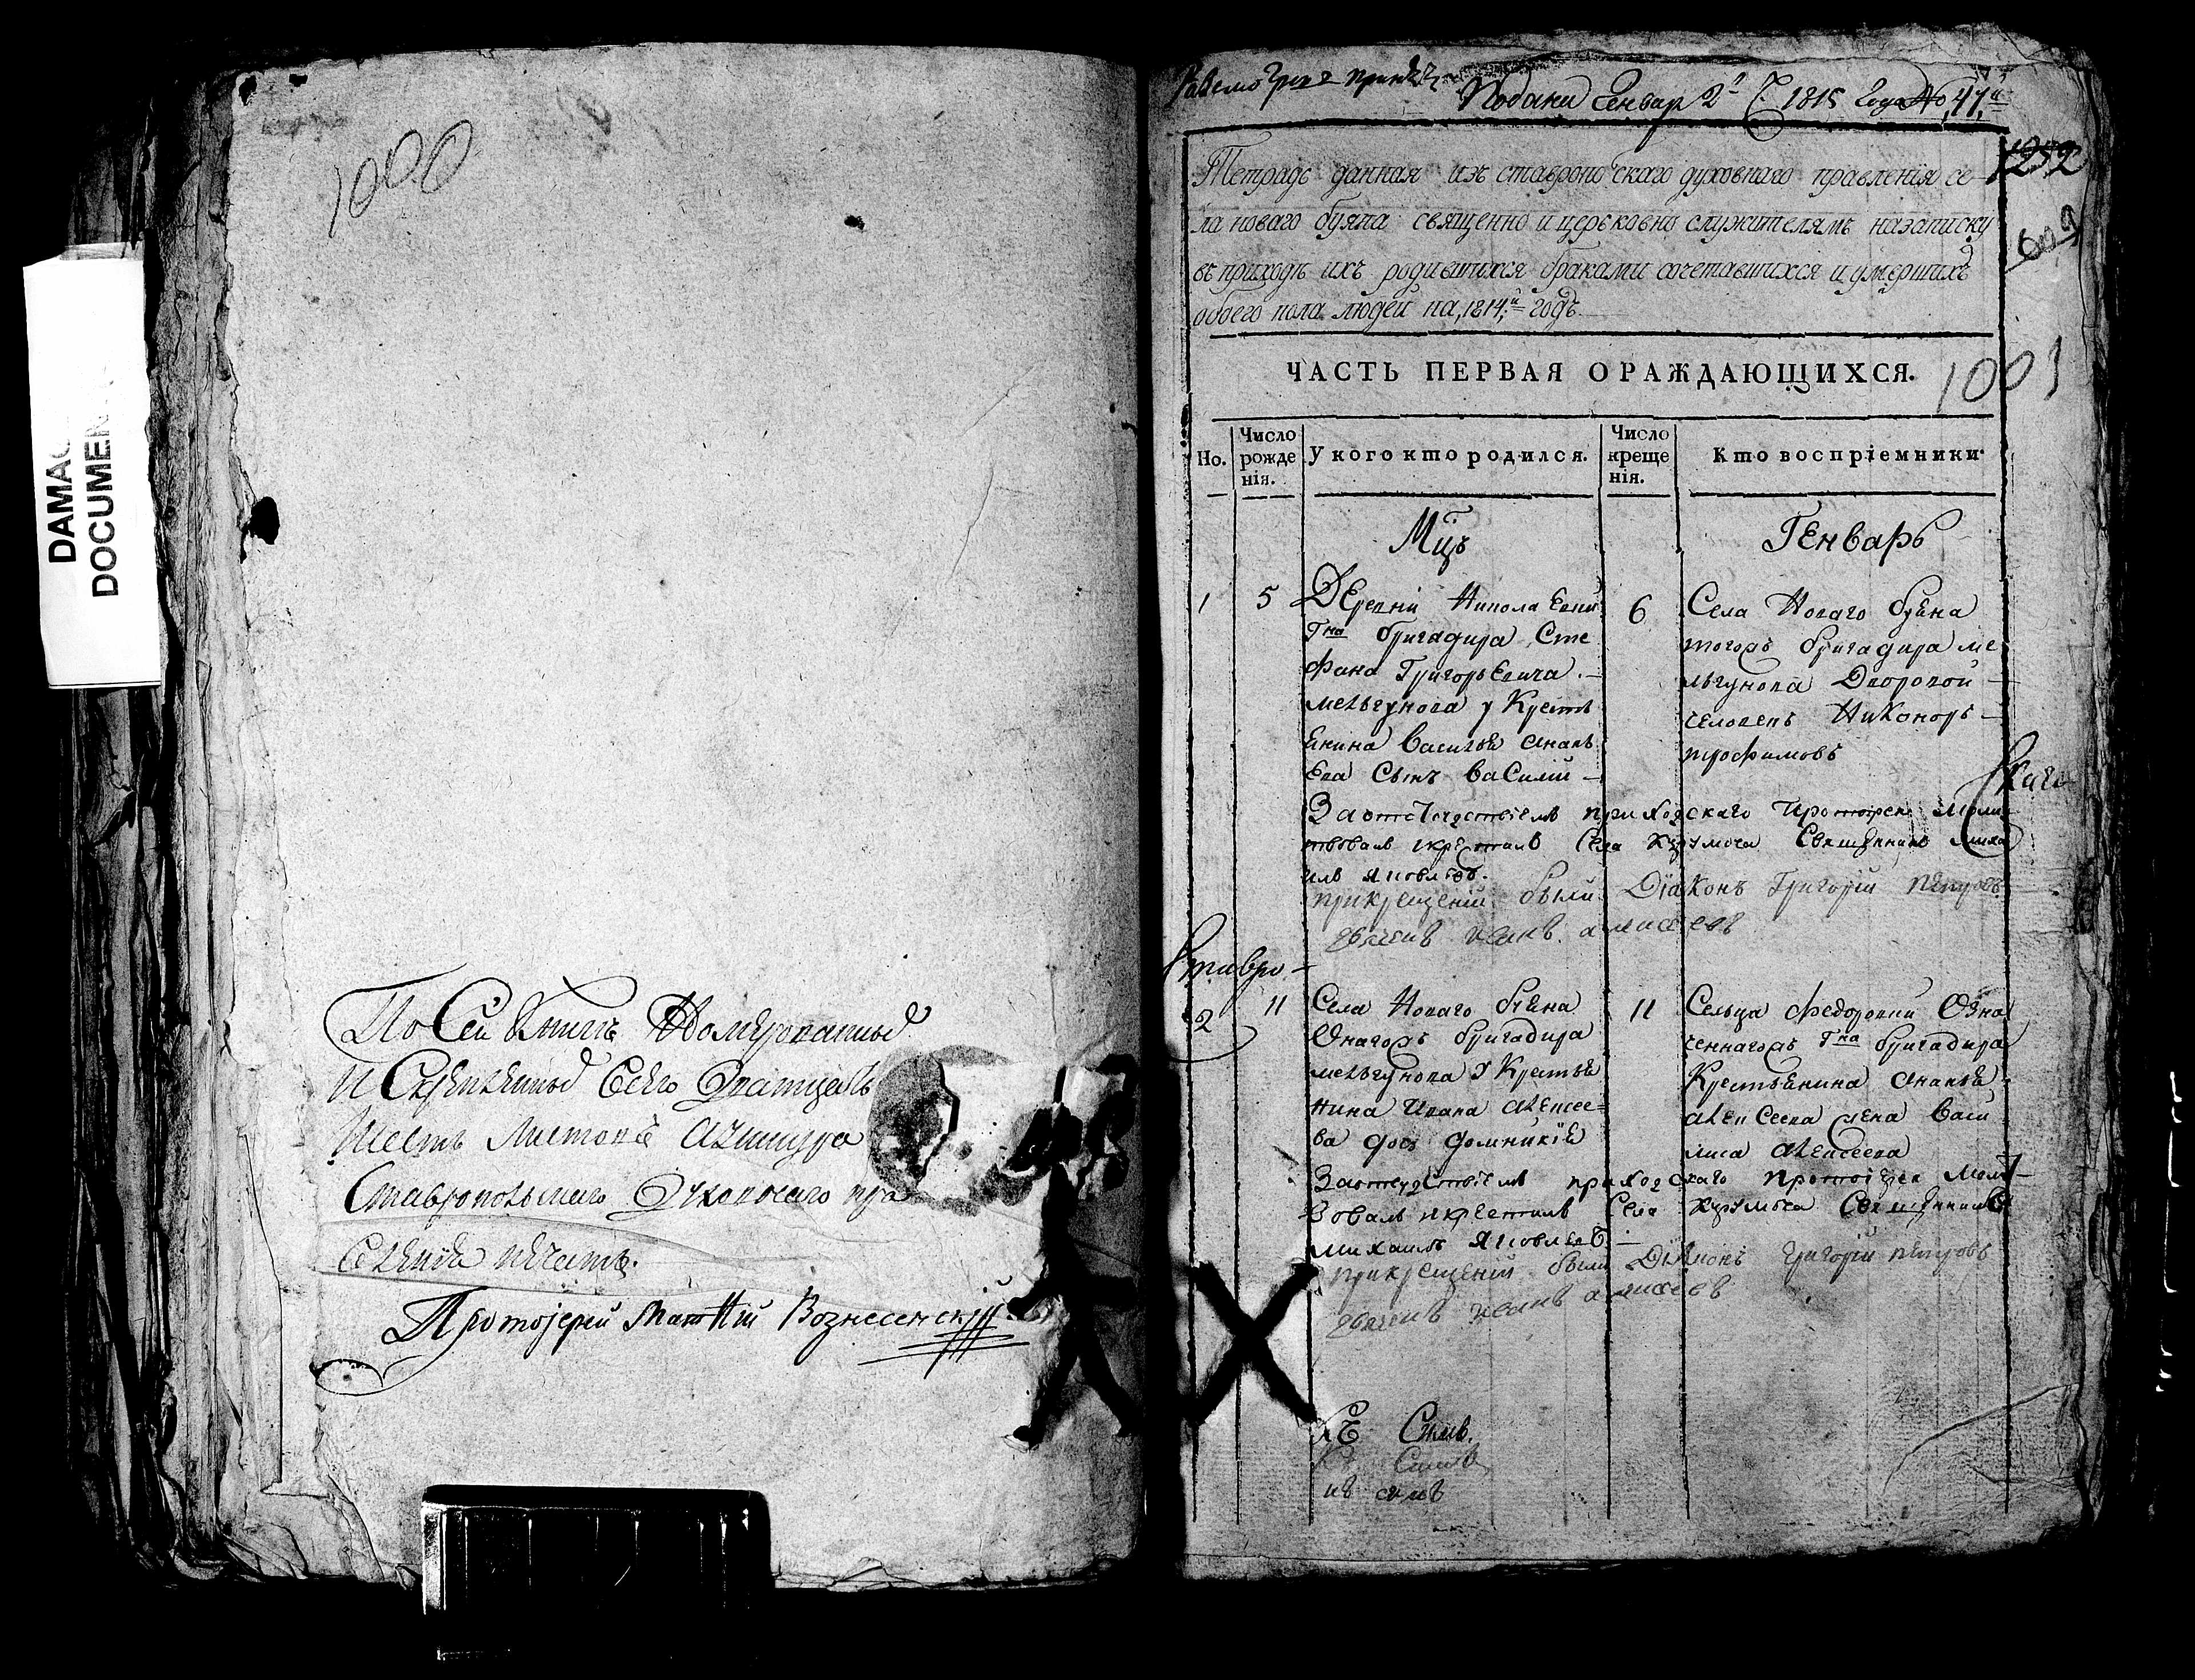 1000
DAMAG
DOCUMEN
По Сей Книгѣ Номерованныхъ
И Скрепленныхъ Всего Дватцать
Шесть Листовъ
Ставропольскаго Духовнаго пра
вленія печать.
Протоіерей Матѳій Вознесенскій
Подана Генвар 2 1815 года No 47
1252
Тетрадь данная изъ ставропольскаго духовнаго правленія се
ла новаго буяна священно и церьковно служителямъ на записку
въ приходѣ ихъ родившихся браками сочетавшихся и умершихъ
обоего пола людей на 1814й годъ
609
ЧАСТЬ ПЕРВАЯ О РАЖДАЮЩИХСЯ.
1001
Но.
Число рожде нія.
У кого кто родился.
Число креще нія.
Кто воспріемники.
Мцъ
Генварь
1
5
Деревни Николаевки
Гна бригадира Сте
фана Григорьевича
мельгунова у Кресть
янина Василья Анань
ева Сынъ Василій
6
Села Новаго буяна
тогожъ бригадира ме
льгунова Дворовой
человекъ Никоноръ
трофимовъ
За отсудствіемъ приходскаго Протоіерея Моли
твовалъ и крестилъ Села Курумоча Священникъ Миха
илъ Яковлевъ.
при крещеніи были Діаконъ Григорій Петровъ
дьячекъ Иванъ алексеевъ
Ставро
2
11
Села Новаго буяна
Онагожъ бригадира
мельгунова у Крестья
нина Ивана Алексее
ва дочь домникія
11
Сельца Федоровки Озна
ченнагожъ Гна бригадира
Крестьянина Ананья
Алексеева жена Васи
лиса Алексеева
За отсудствіемъ приходскаго протоіерея Молит
вовалъ и крестилъ Села Курумоча Священникъ
Михаилъ Яковлевъ
при крещеніи были Діяконъ Григорій Петровъ
дьячекъ Иванъ алексеевъ